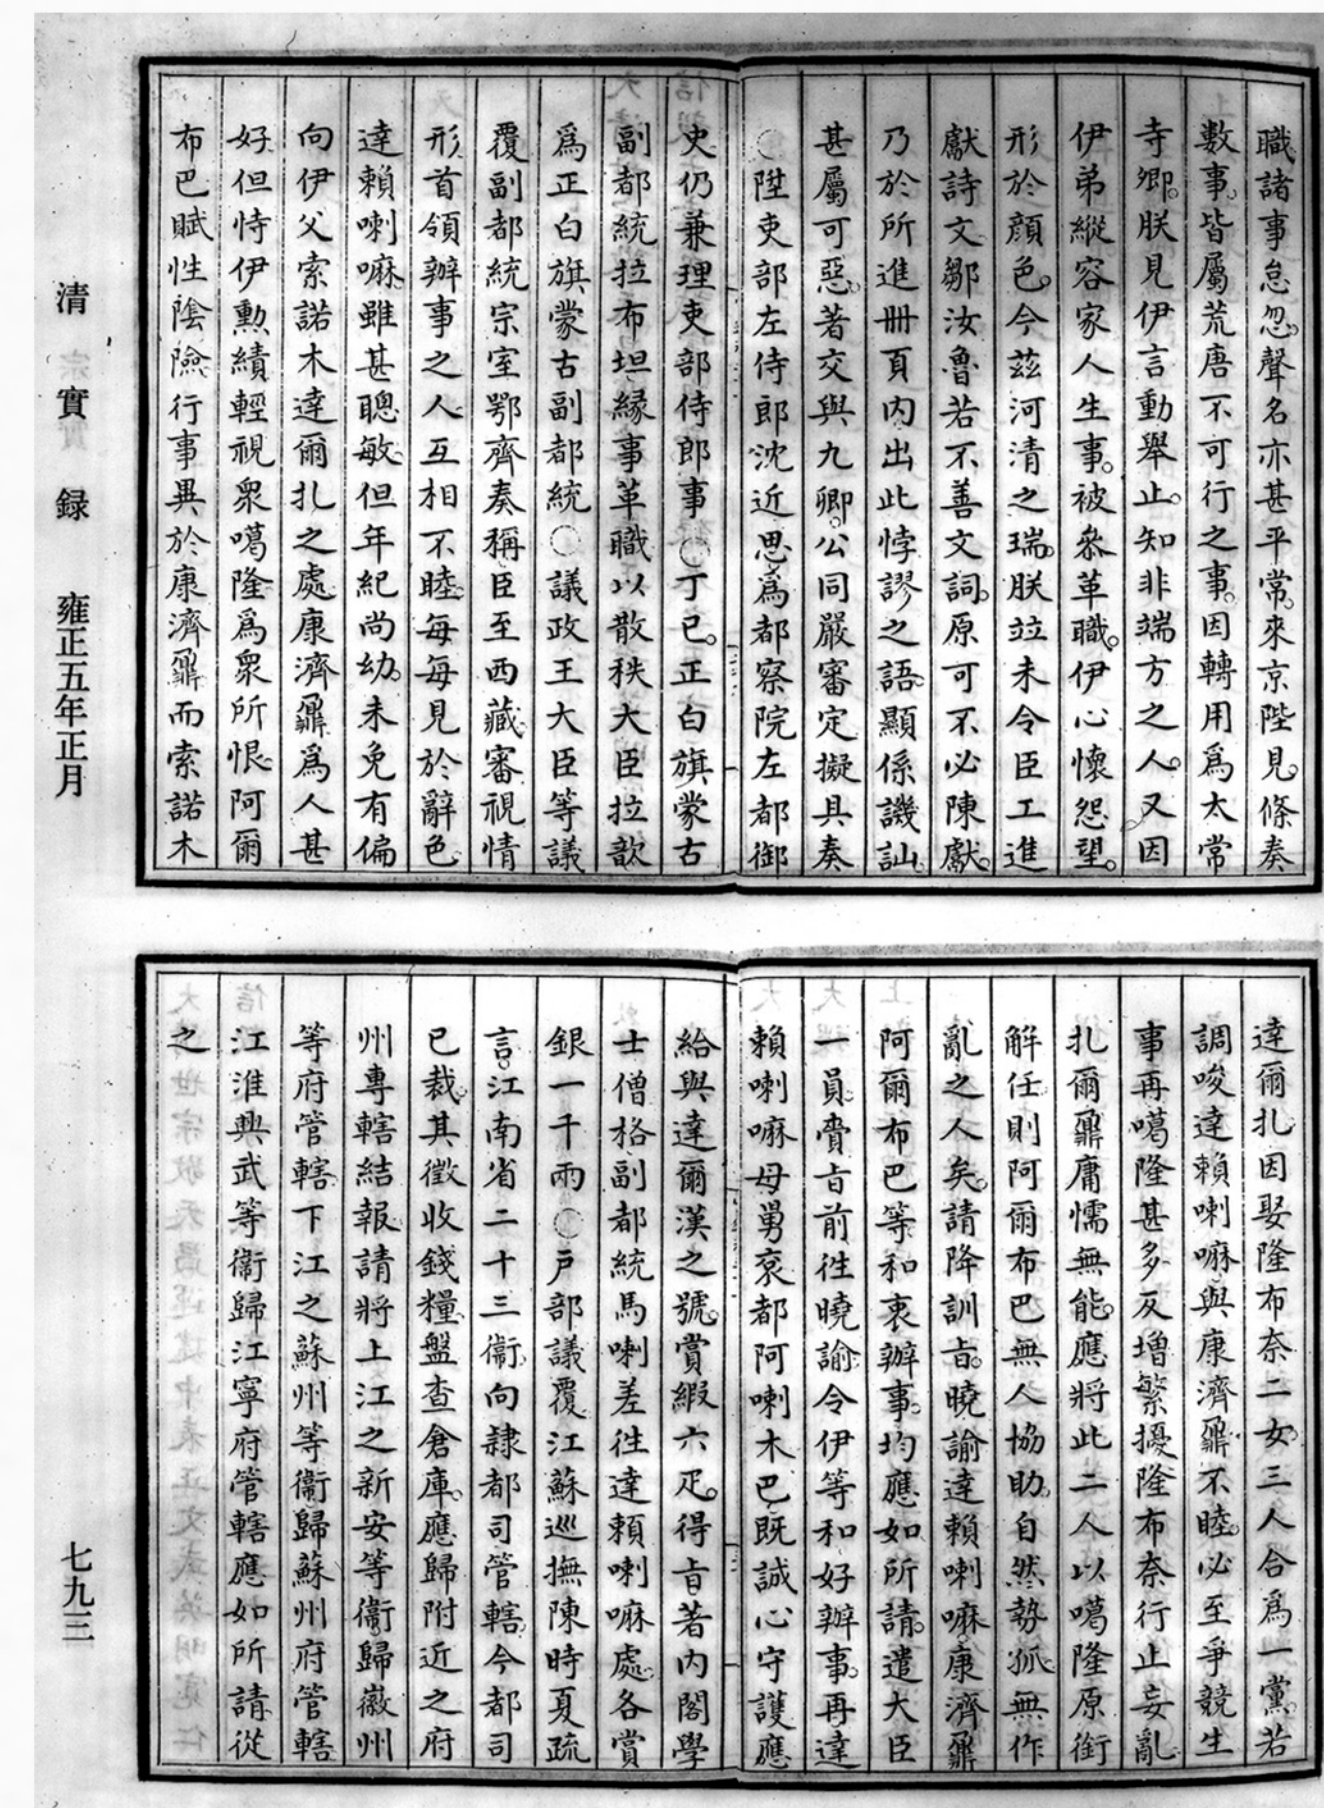 職諸事怠忽。聲名亦甚平常。來京陛見。條奏
數事。皆屬荒唐不可行之事。因轉用爲太常
寺卿。朕見伊言動舉止。知非端方之人。又因
伊弟縱容家人生事。被參革職。伊心懷怨望。
形於顏色。今茲河清之瑞。朕竝未令臣工進
獻詩文。鄒汝魯若不善文詞。原可不必陳獻。
乃於所進冊頁內。出此悖謬之語。顯係譏訕。
甚屬可惡。著交與九卿。公同嚴審定擬具奏
○陞吏部左侍郎沈近思爲都察院左都御
史仍兼理吏部侍郎事○丁巳。正白旗蒙古
副都統拉布坦緣事革職以散秩大臣拉歆
爲正白旗蒙古副都統○議政王大臣等議
覆副都統宗室鄂齊奏稱臣至西藏審視情
形首領辦事之人互相不睦。每每見於辭色。
達賴喇嘛。雖甚聰敏。但年紀尚幼。未免有偏
向伊父索諾木達爾扎之處。康濟鼐爲人甚
好。但恃伊勳績輕視衆噶隆。爲衆所恨。阿爾
布巴賦性陰險。行事異於康濟鼐。而索諾木
達爾扎。因娶隆布奈二女。三人合爲一黨。若
調唆達賴喇嘛與康濟鼐不睦。必至爭競生
事。再噶隆甚多。反增繁擾。隆布奈行止妄亂。
扎爾鼐庸懦無能。應將此二人以噶隆原銜
解任。則阿爾布巴無人協助。自然勢孤。無作
亂之人矣。請降訓旨。曉諭達賴喇嘛。康濟鼐
阿爾布巴等和衷辦事。均應如所請。遣大臣
一員。賫旨前徃曉諭。令伊等和好辦事。再達
賴喇嘛母舅袞都阿喇木巴。既誠心守護。應
給與達爾漢之號。賞緞六疋。得旨著內閣學
士僧格。副都統馬喇。差徃達賴喇嘛處。各賞
銀一千兩○戶部議覆。江蘇巡撫陳時夏疏
言。江南省二十三衞。向隸都司管轄。今都司
已裁。其徵收錢糧盤查倉庫。應歸附近之府
州專轄結報。請將上江之新安等衞歸徽州
等府管轄。下江之蘇州等衞歸蘇州府管轄
江淮興武等衞歸江寧府管轄。應如所請。從
之
清 實 錄 雍正五年正月
七九三